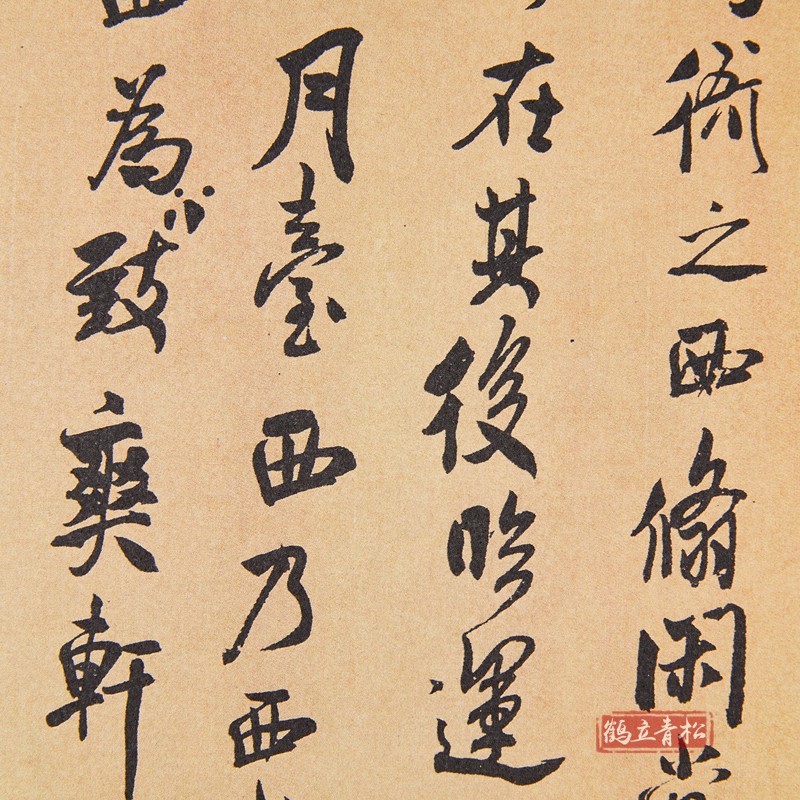 衙之西翛閑
在其後吟運
月臺西乃西
為致爽軒
鶴立青松